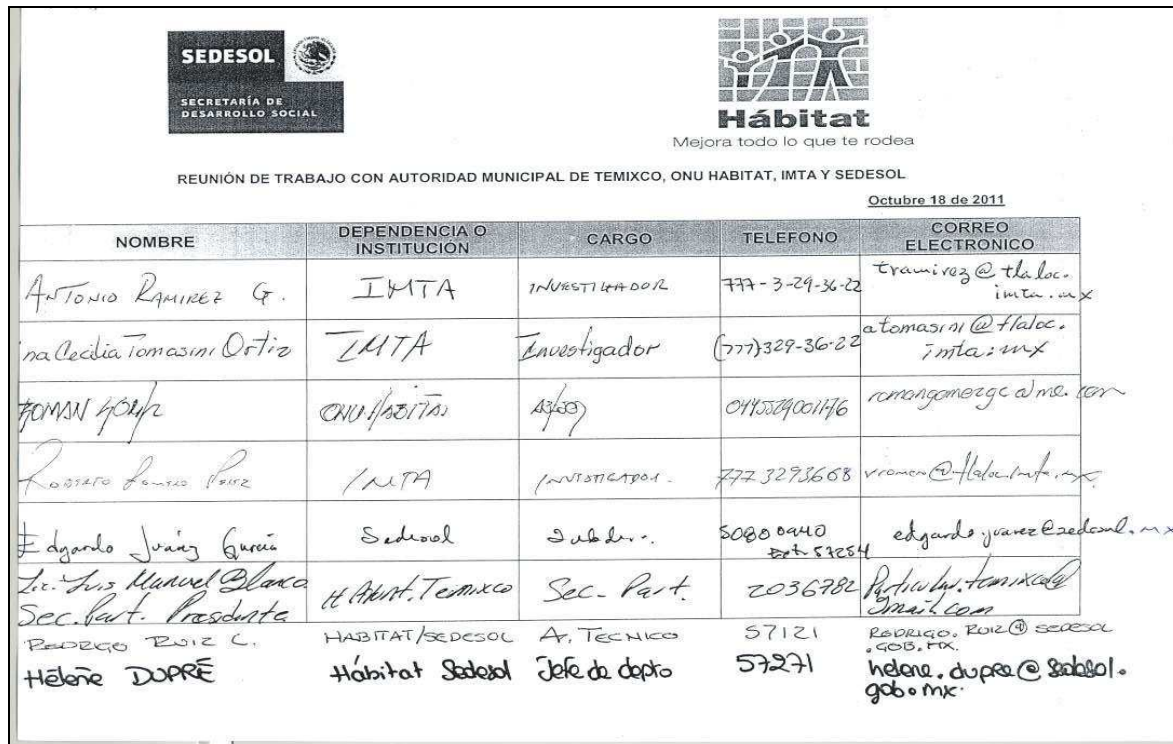 SEDESOL
SECRETARÍA DE
DESARROLLO SOCIAL
Hábitat
Mejora todo lo que te rodea
REUNIÓN DE TRABAJO CON AUTORIDAD MUNICIPAL DE TEMIXCO, ONU HABITAT, IMTA Y SEDESOL
Octubre 18 de 2011
NOMBRE DEPENDENCIA O INSTITUCIÓN CARGO TELEFONO CORREO ELECTRONICO
ANTONIO RAMIREZ G. IMTA INVESTIGADOR 777-3-29-36-22 tramirez@tlaloc.imta.mx
na Cecilia Tomasini Ortiz IMTA Investigador (777)329-36-22 atomasini@tlaloc.imta.mx
ROMAN ONU HABITAT
IMTA INVESTIGADOR. 777 3293668
Edgardo Juárez García Sedesol 50800940 Ext. 57254 edgardo.juarez@sedesol.mx
Lic. Luis Manuel Blanco Sec. Part. Presidente Temixco Sec. Part. 2036782 Particular.temixco@gmail.com
RODRIGO RUIZ C. HABITAT/SEDESOL A. TECNICO 57121 RODRIGO.RUIZ@SEDESOL.GOB.MX
Hélène DUPRÉ Hábitat Sedesol Jefe de depto 57271 helene.dupre@sedesol.gob.mx.